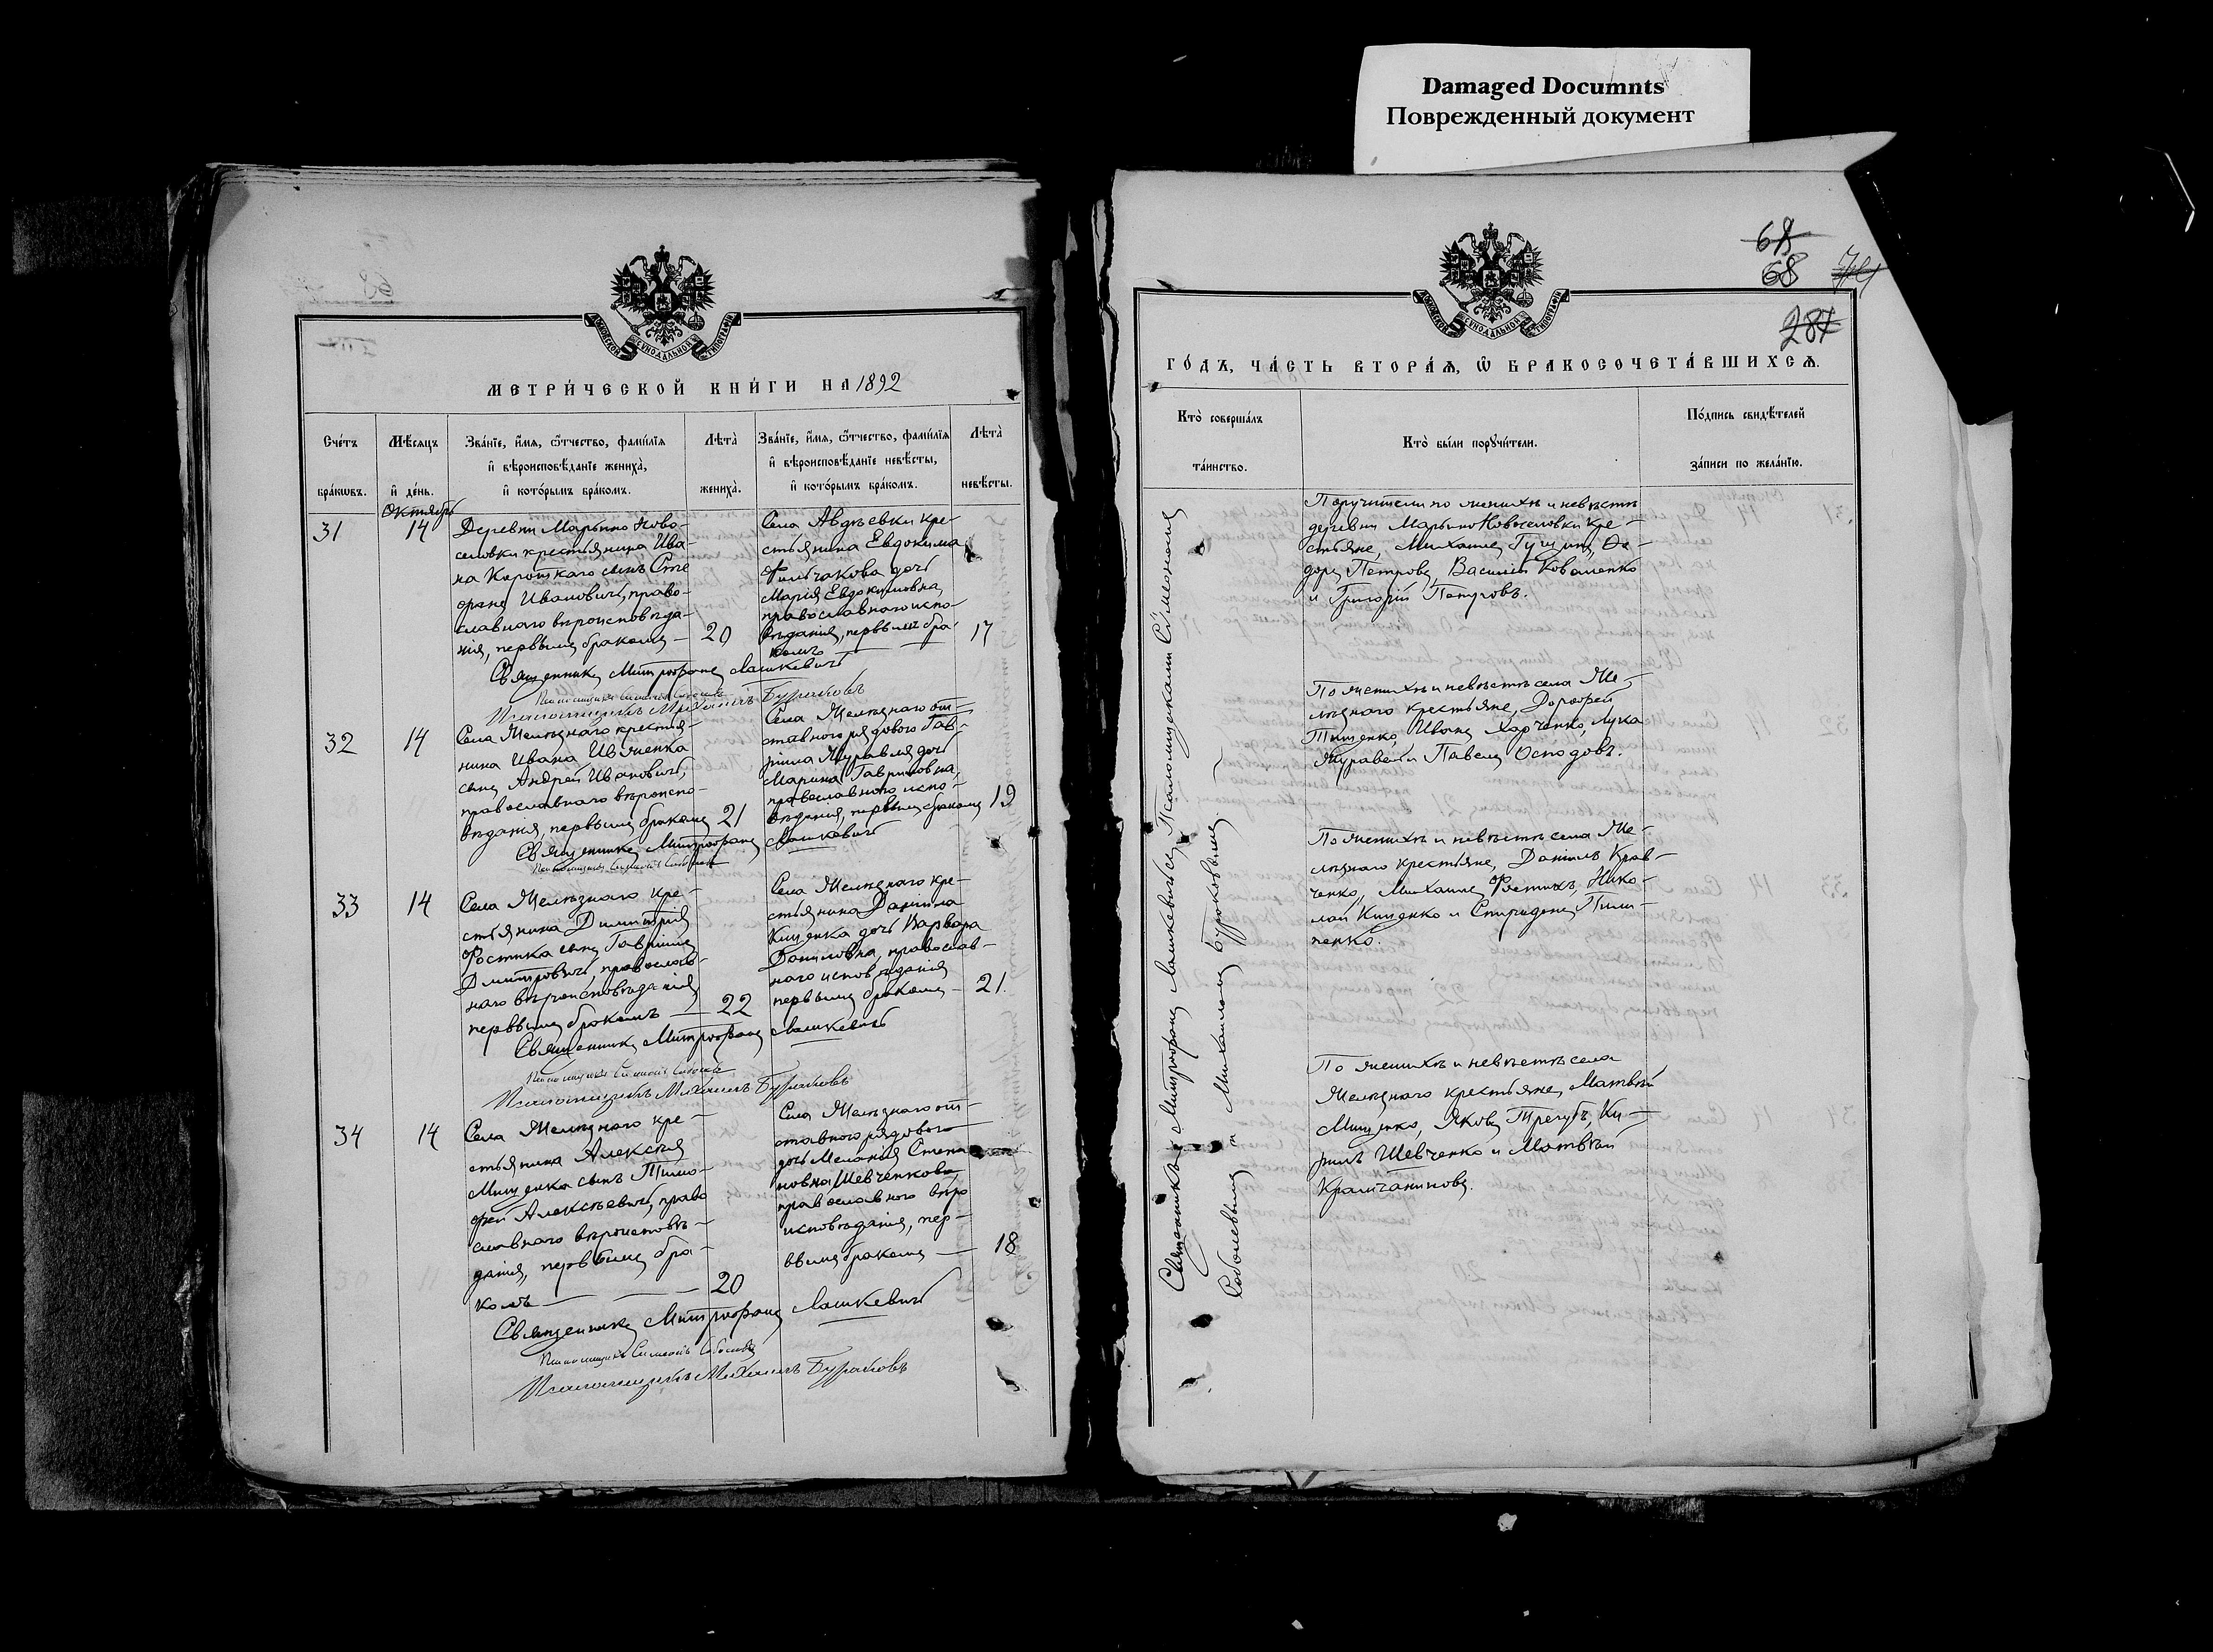 Damaged Documnts
Поврежденный документ
МЕТРИ́ЧЕСКОЙ КНИ́ГИ НА 1892
Счетъ
бракѡвъ.
Мѣсяцъ
и день.
Званіе, имя, ѿчество, фамилія
и вѣроисповѣданіе жениха,
и которымъ бракомъ.
Лѣта
жениха.
Званіе, имя, ѿчество, фамилія
и вѣроисповѣданіе невѣсты,
и которымъ бракомъ.
Лѣта
невѣсты.
Октябрь
31
14
Деревни Марьино Ново-
селовки крестьянина Ива-
на Короткаго сынъ Сте
фанъ Ивановичъ, право-
славнаго вѣроисповѣда-
нія, первымъ бракомъ —
20
Села Авдѣевки кре-
стьянина Евдокима
дочь
Марія Евдокимовна,
православнаго испо-
вѣданія, первымъ бра-
комъ
17
Священникъ Митрофанъ Лашкевичъ
Псаломщикъ Симеонъ Соболевъ
Псаломщикъ Михаилъ Бураковъ
32
14
Села Желѣзнаго крестья-
нина Ивана Ивженка
сынъ Андрей Ивановичъ,
православнаго вѣроиспо-
вѣданія, первымъ бракомъ
21
Села Желѣзнаго от-
ставного рядового Гав-
ріила Журавля дочь
Марина Гавриловна,
православнаго испо-
вѣданія, первымъ бракомъ
19
Священникъ Митрофанъ Лашкевичъ
Псаломщикъ Симеонъ Соболевъ
33
14
Села Желѣзнаго кре-
стьянина Димитрія
Фостика сынъ Гавріилъ
Дмитровичъ, православ-
наго вѣроисповѣданія
первымъ бракомъ —
22
Села Желѣзнаго кре-
стьянина Даніила
Кищенка дочь Варвара
Даниловна, православ-
наго исповѣданія
первымъ бракомъ —
21.
Священникъ Митрофанъ Лашкевичъ
Псаломщикъ Симеонъ Соболевъ
Псаломщикъ Михаилъ Бураковъ
34
14
Села Желѣзнаго кре-
стьянина Алексѣя
Мищенка сынъ Тимо-
фей Алексѣевичъ, право
славнаго вѣроисповѣ-
данія, первымъ бра-
комъ —
20
Села Желѣзнаго от-
ставного рядового
дочь Меланія Степа
новна Шевченкова
православнаго вѣро
исповѣданія, пер-
вымъ бракомъ —
18
Священникъ Митрофанъ Лашкевичъ
Псаломщикъ Симеонъ Соболевъ
Псаломщикъ Михаилъ Бураковъ
68
68
287
ГО́ДЪ, ЧА́СТЬ ВТОРА́Я, Ѡ БРАКОСОЧЕТА́ВШИХСЯ.
Кто совершалъ
таинство.
Кто были поручители.
Подпись свидѣтелей
записи по желанію.
Священникъ Митрофанъ Лашкевичъ съ Псаломщиками Симеономъ
Соболевымъ и Михаиломъ Бураковымъ.
Поручители по женихѣ и невѣстѣ
деревни Марьино Новоселовки кре-
стьяне, Михаилъ Гущинъ, Ѳе-
доръ Петровъ, Василій Коваленко
и Григорій Петуховъ.
По женихѣ и невѣстѣ села Же-
лѣзнаго крестьяне, Дорофей
Тищенко, Иванъ Харченко, Лука
Журавель и Павелъ Осподовъ.
По женихѣ и невѣстѣ села Же-
лѣзнаго крестьяне, Даніилъ Крав-
ченко, Михаилъ Фостикъ, Нико-
лай Кищенко и Спиридонъ Пили-
пенко.
По женихѣ и невѣстѣ села
Желѣзнаго крестьяне, Матвѣй
Мищенко, Яковъ Трегубъ, Ки-
рилъ Шевченко и Матвѣй
Крамчаниновъ.